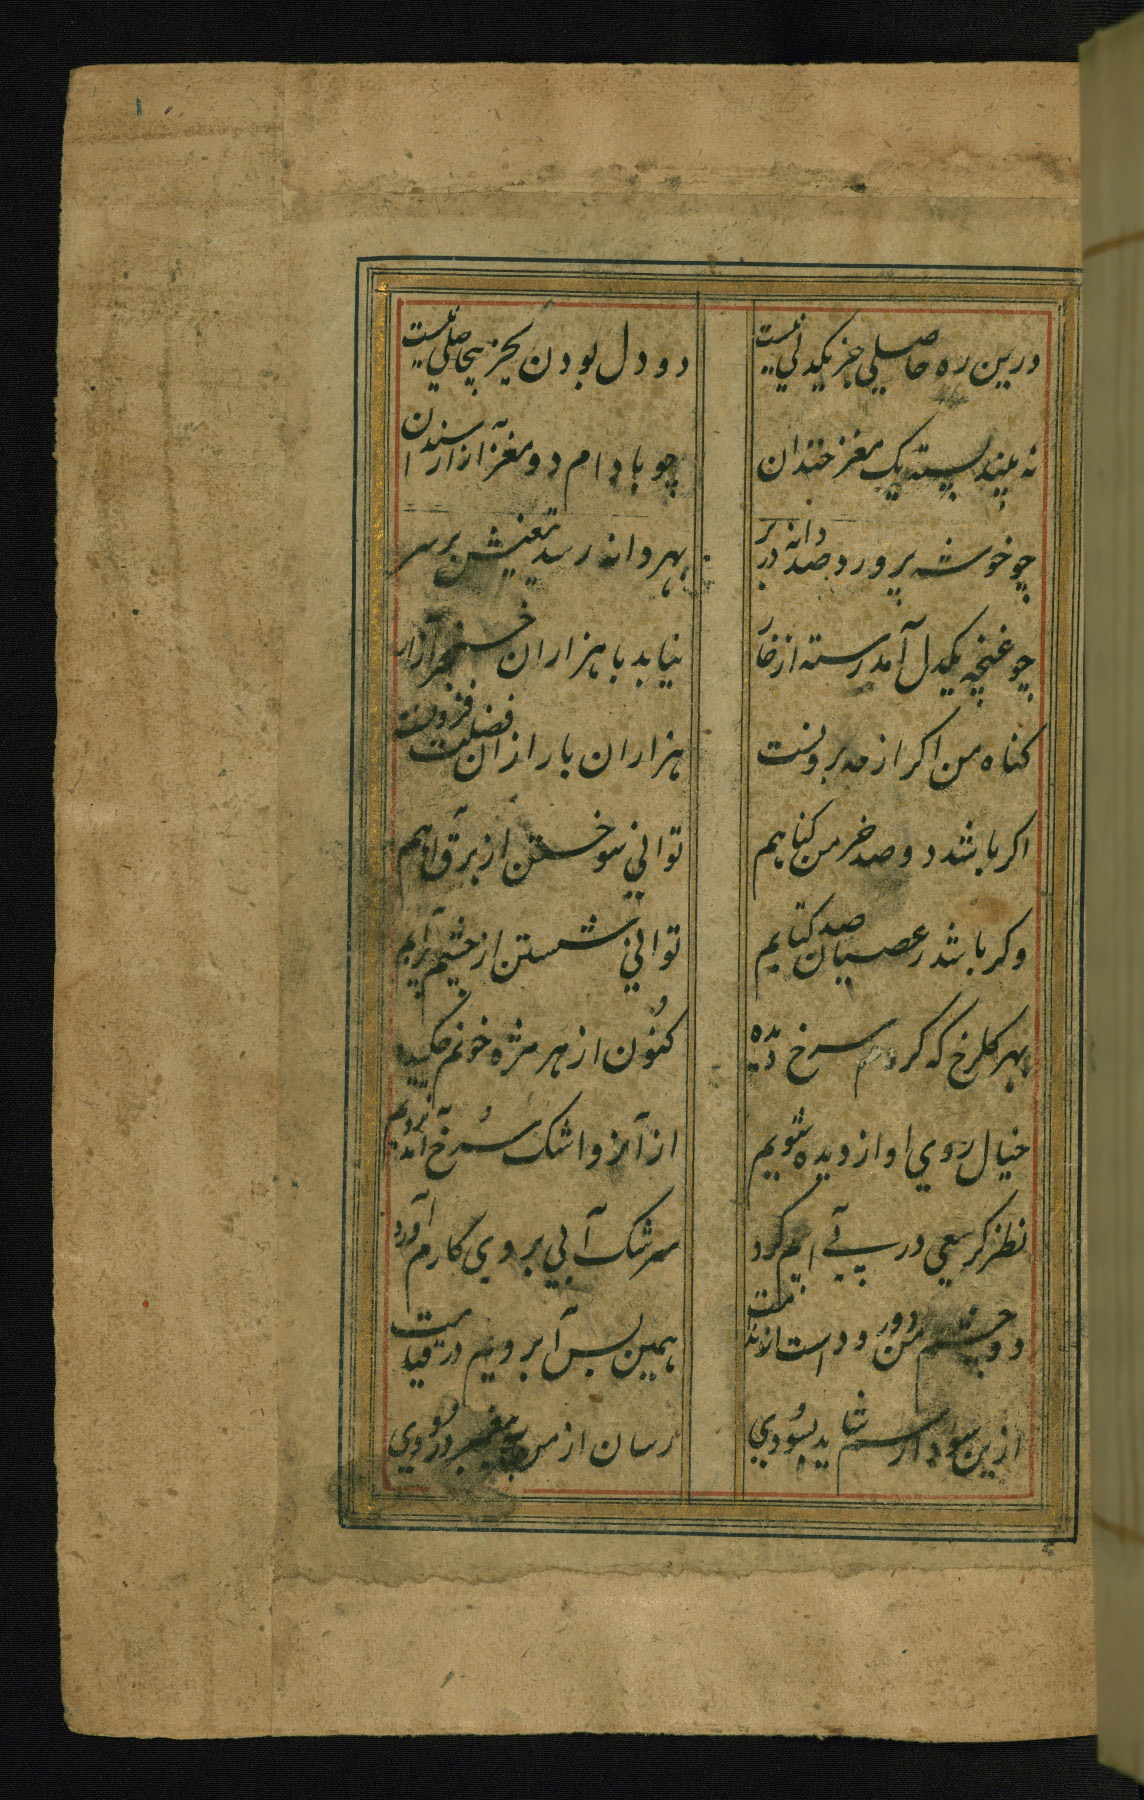 درین ره حاصلی جز یکدلی نیست
دو دل بودن بجز بیحاصلی نیست
نه بیند پسته یک مغز خندان
چو بادام دو مغز آزار سندان
چو خوشه پرورد صد دانه در بر
بهر دانه رسد تیغیش بر سر
چو غنچه یکدل آمد رسته از خار
نیابد با هزاران خنجر آزار
کناه من اکر از حد برونست
هزاران بار از ان فضلت فزونست
اکر باشد دو صد خرمن کناهم
توانی سوختن از برق آهم
وکر باشد ز عصیان صد کتابم
توانی شستن از چشم پر آبم
بهر کلرخ که کردم سرخ دیده
کنون از هر مژه خونم چکیده
خیال روی او از دیده شویم
از آنرو اشک سرخ آمد برویم
نظر کر سعی در بی آبیم کرد
سرشک آبی بروی کارم آورد
دو چشم من دو رود است از ندامت
همین بس آبرویم در قیامت
ازین سودا رسم شاید بسودی
رسان از من به پیغمبر درودی